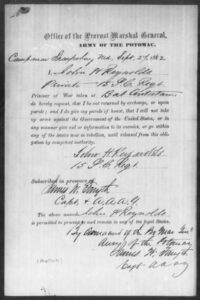 Office of the Provost Marshal General,
ARMY OF THE POTOMAC,
Camp near Sharpsburg Md, Sept. 27 1862
I, John H Reynolds
Private 15 S. C. Regt
Prisoner of War taken at Bat Antietam
do hereby request, that I be not returned by exchange, or upon
parole; and I do give my parole of honor, that I will not take
up arms against the Government of the United States, or in
any manner give aid or information to its enemies, or go within
any of the states now in rebellion, until released from this
obligation by competent authority.
John H. Reynolds
15 S. C. Regt
Subscribed in presence of
James W. Forsyth
Capt. & A.A.A.G
The above
John H Reynolds
is permitted to
By Command of the
Army of the Potomac
James W. Forsyth
Capt